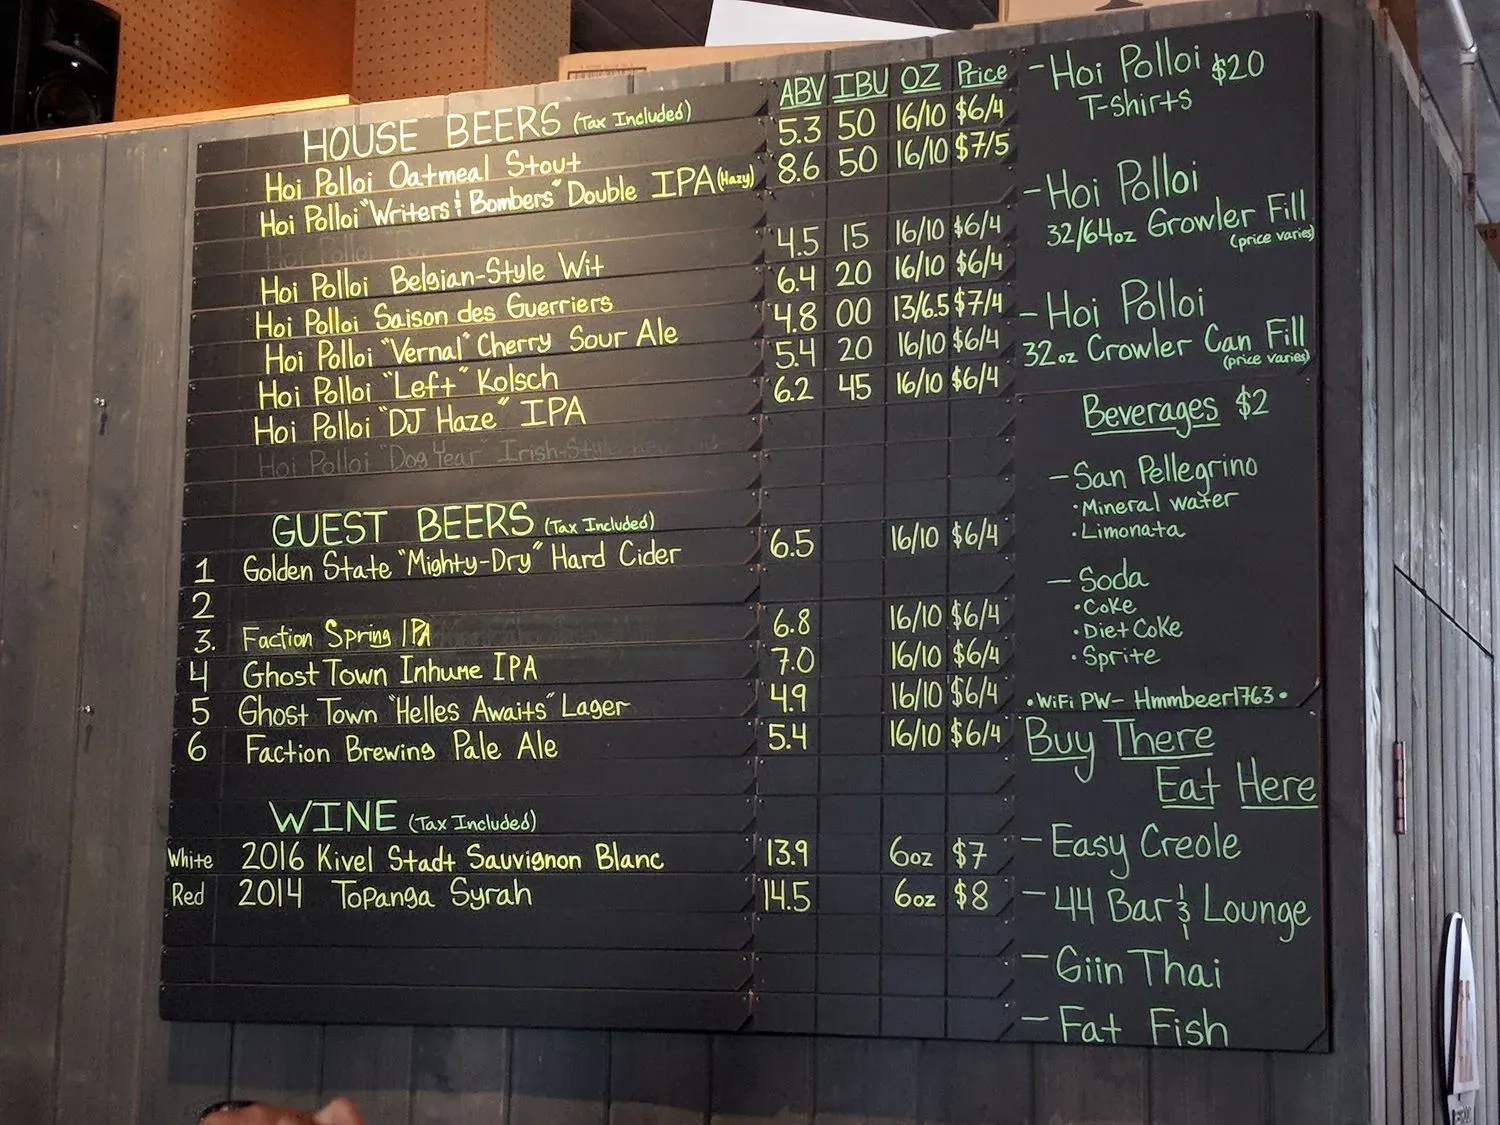 HOUSE BEERS (Tax Included) ABV IBU OZ Price
Hoi Polloi Oatmeal Stout 5.3 50 16/10 $6/4
Hoi Polloi "Writers & Bombers" Double IPA (Hazy) 8.6 50 16/10 $7/5
Hoi Polloi Belgian-Style Wit 4.5 15 16/10 $6/4
Hoi Polloi Saison des Guerriers 6.4 20 16/10 $6/4
Hoi Polloi "Vernal" Cherry Sour Ale 4.8 00 13/6.5 $7/4
Hoi Polloi "Left" Kolsch 5.4 20 16/10 $6/4
Hoi Polloi "DJ Haze" IPA 6.2 45 16/10 $6/4
Hoi Polloi "Dog Year" Irish-Style
GUEST BEERS (Tax Included)
1 Golden State "Mighty-Dry" Hard Cider 6.5 16/10 $6/4
2
3. Faction Spring IPA 6.8 16/10 $6/4
4 Ghost Town Inhume IPA 7.0 16/10 $6/4
5 Ghost Town "Helles Awaits" Lager 4.9 16/10 $6/4
6 Faction Brewing Pale Ale 5.4 16/10 $6/4
WINE (Tax Included)
White 2016 Kivel Stadt Sauvignon Blanc 13.9 6oz $7
Red 2014 Topanga Syrah 14.5 6oz $8
- Hoi Polloi $20
T-shirts
- Hoi Polloi
32/64oz Growler Fill
(price varies)
- Hoi Polloi
32oz Crowler Can Fill
(price varies)
Beverages $2
- San Pellegrino
• Mineral water
• Limonata
- Soda
• Coke
• Diet Coke
• Sprite
• WiFi PW- Hmmbeer1763 •
Buy There
Eat Here
- Easy Creole
- 44 Bar & Lounge
- Giin Thai
- Fat Fish